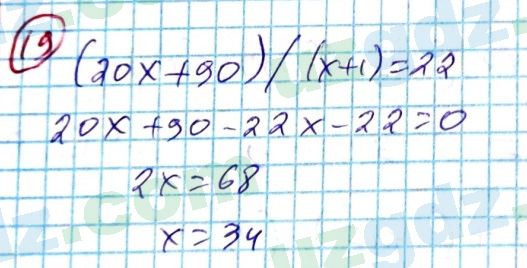 19
(20x+90)/(x+1)=22
20x+90-22x-22=0
2x=68
x=34
uzgdz.com